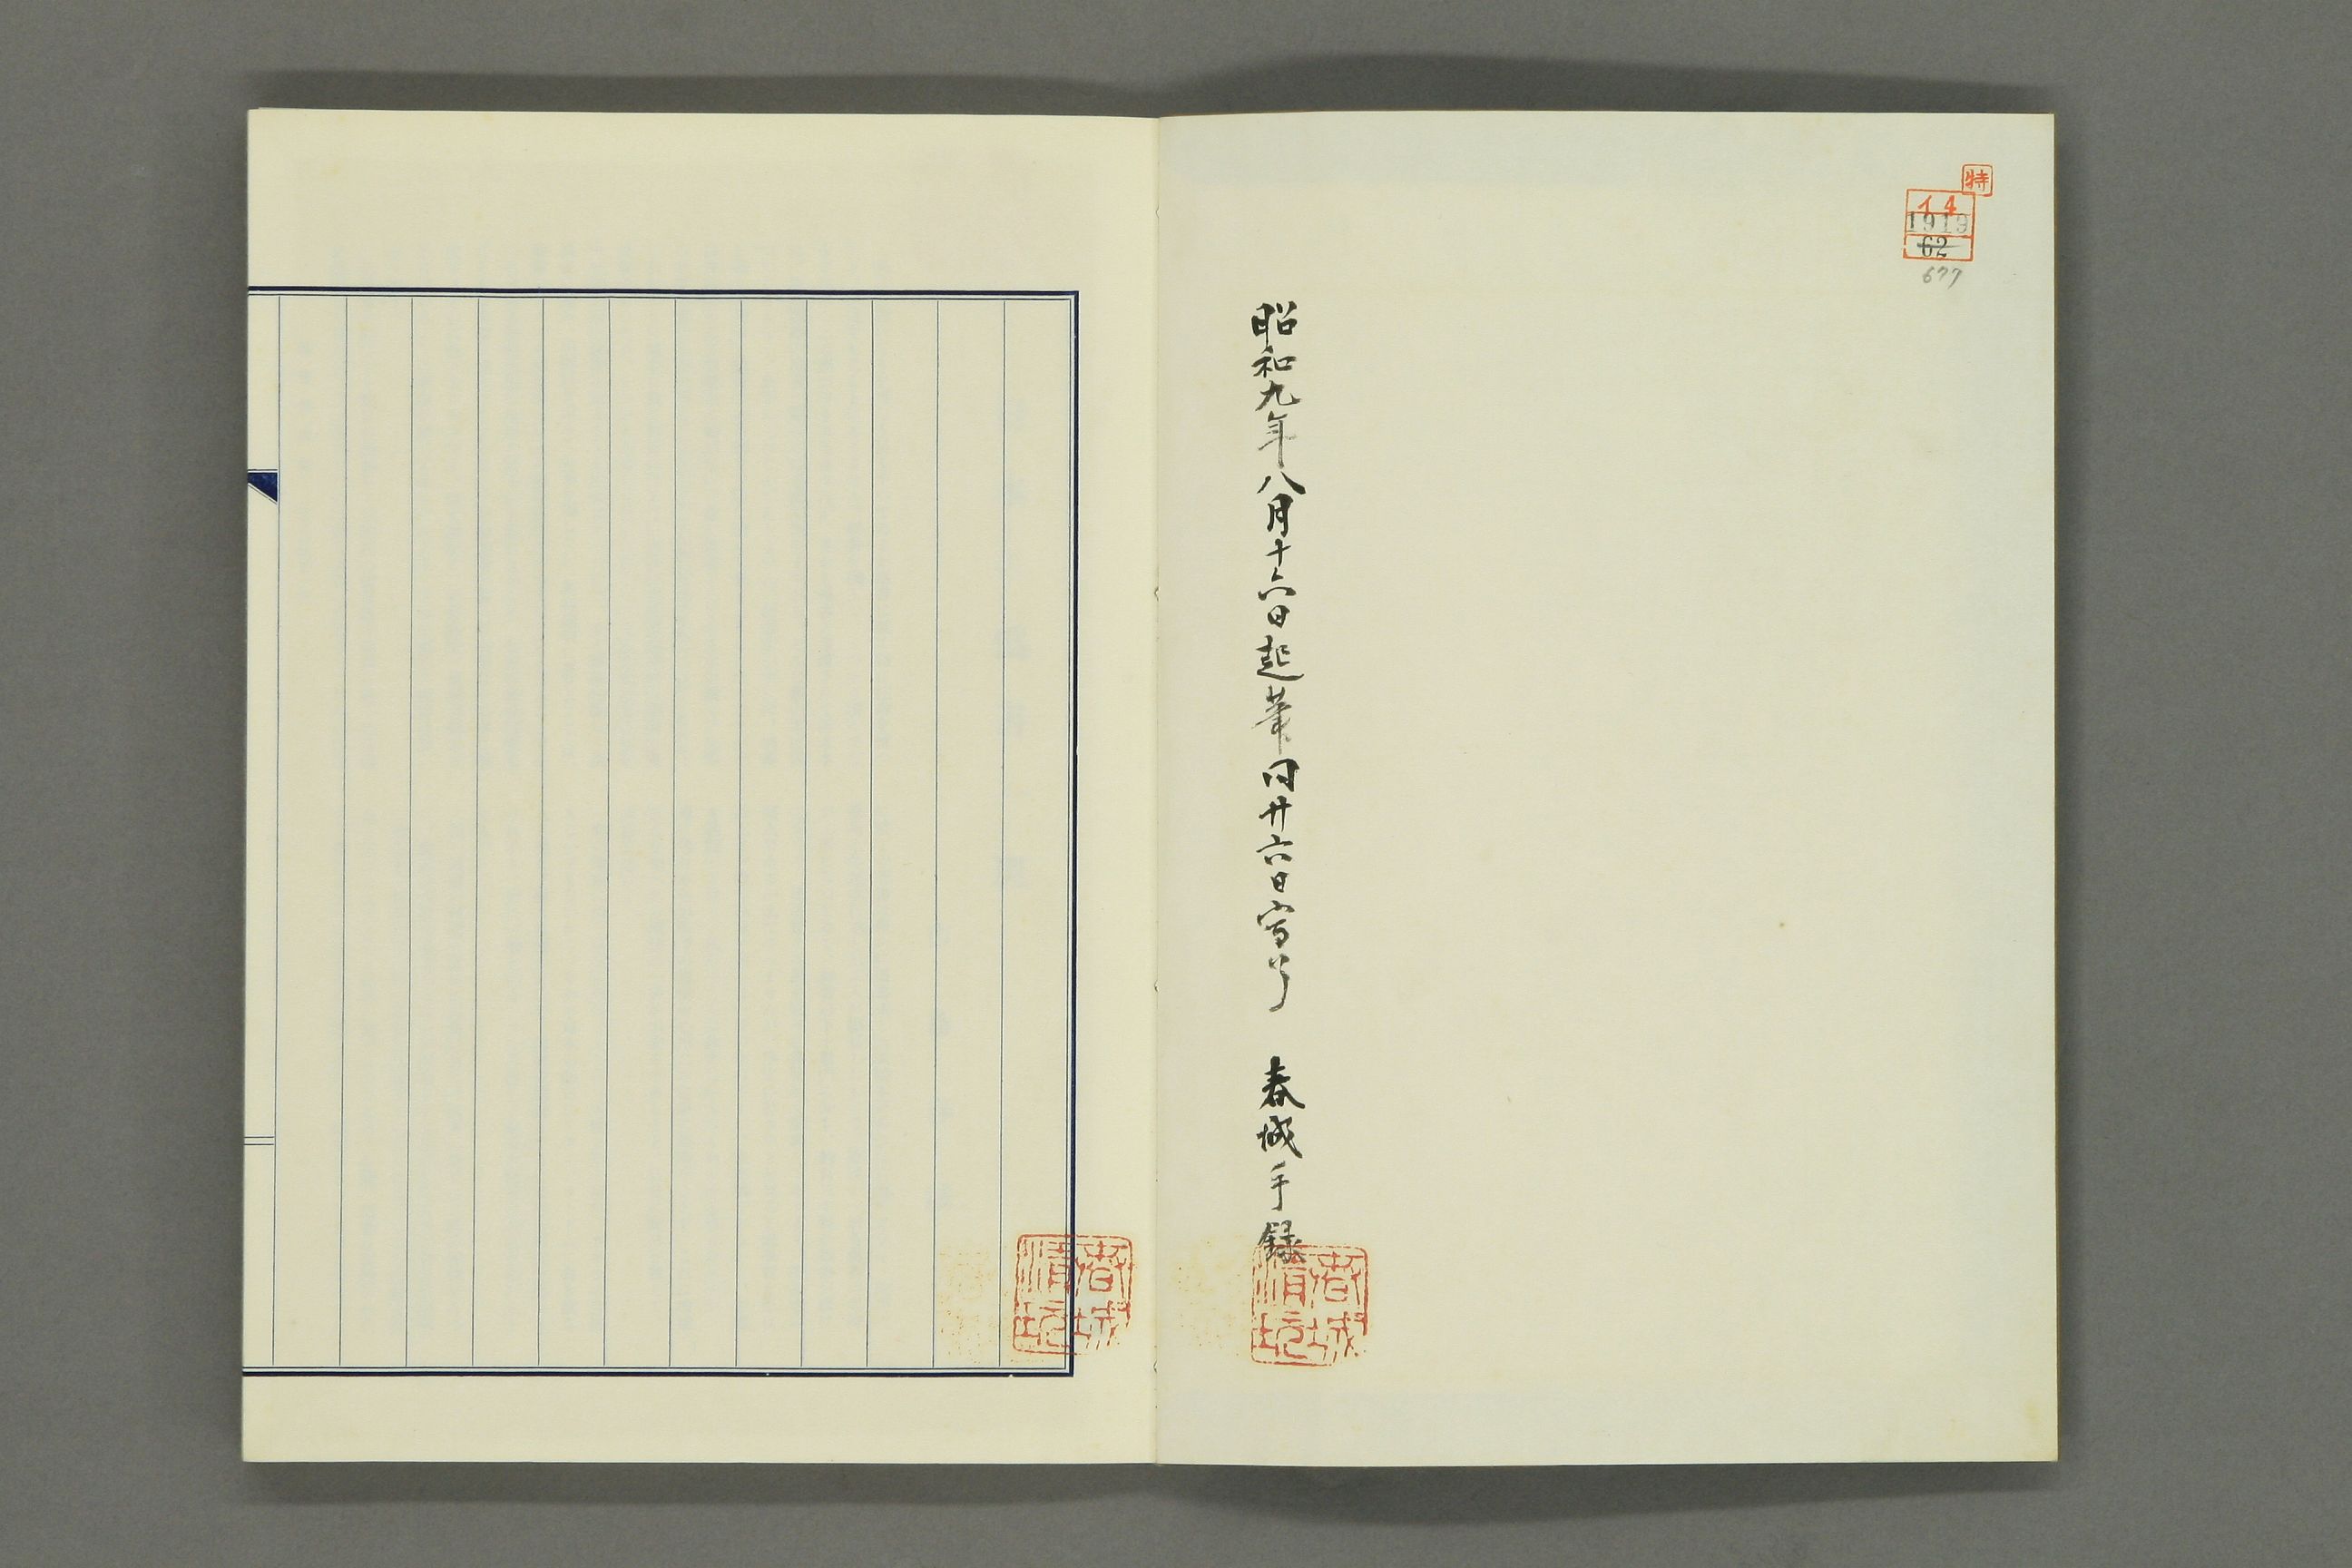 特
イ4
1919
62
677
昭和九年八月十六日起筆同廿六日写了 春城手録
春城
清玩
春城
清玩